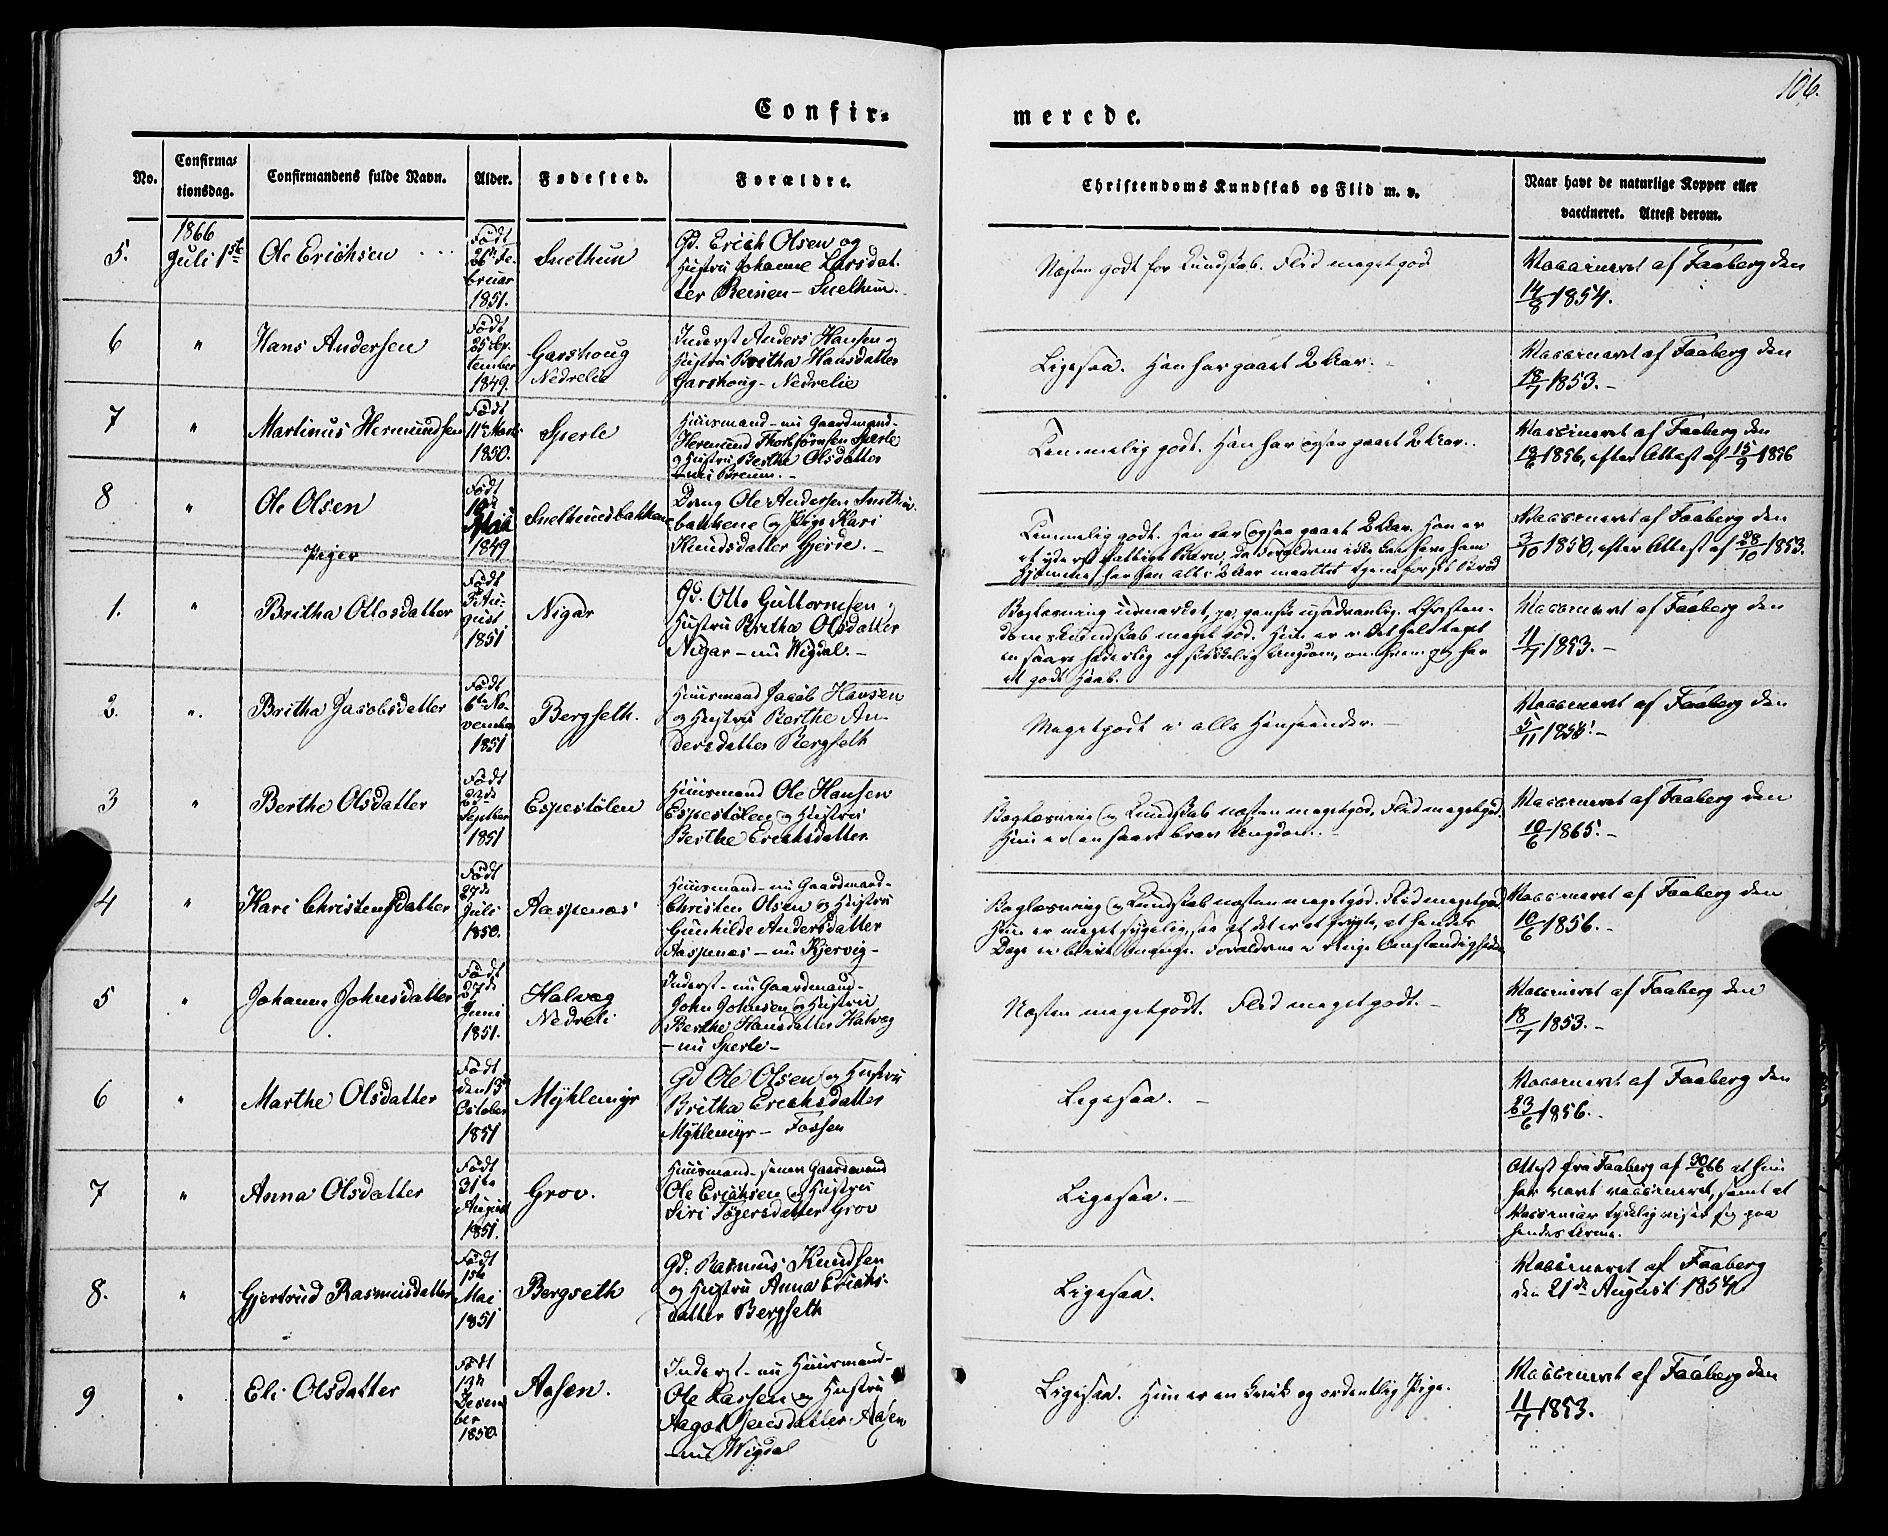 106.
Confir-
merede.
No.
Confirma-
tionsdag.
Confirmandens fulde Navn.
Alder.
Fødested.
Forældre.
Christendoms Kundskab og Flid m. v.
Naar havt de naturlige Kopper eller
vaccineret. Attest derom.
5.
1866
Juli 1ste
Ole Erichsen
Født
26de Fe-
bruar
1851.
Snethun
Gd. Erich Olsen og
Hustru Johanne Larsdat-
ter Snethun.
Næsten godt for Kundskab. Flid megetgod
Vaccineret af Faaberg den
14/8 1854.
6
"
Hans Andersen
Født
25 Sep-
tember
1849.
Garshoug
Nedrelie
Inderst Anders Hansen og
Hustru Britha Hansdatter
Garshoug - Nedrelie
Ligesaa. Han har gaaet 2 Aar.
Vaccineret af Faaberg den
18/7 1853.-
7
"
Martinus Hermundsen
Født
11te Marts
1850.
Sperle
Huusmand - nu Gaardmand-
Hermund Thorbjørnsen Sperle
og Hustru Berthe Olsdatter
- nu Breum.-
Temmelig godt. Han har ogsaa gaaet 2 Aar.
Vaccineret af Faaberg den
1856, efter Attest af 15/9 1856
8
"
Ole Olsen
Født
Mai
1849
Snethunsbakkene
Dreng Ole Andersen Snethun-
bakkene og Pige Kari
Knudsdatter Gjerde.-
Temmelig godt. Han har ogsaa gaaet 2 Aar. Han er
et yderst fattigt Barn, da Forældrene ikke kan have ham
hjemme, har han alt i 2 Aar maattet tjene for sit Brød
Vaccineret af Faaberg den
3/10 1850, efter Attest af 28/10 1853.
Piger
1.
"
Britha Ottosdatter
Født
Au-
gust
1851
Nigar
Gd. Otto Guttormsen
Hustru Britha Olsdatter
Nigar - nu Wigdal.-
Boglæsning udmærket, ja ganske usædvanlig. Christen-
domskundskab meget god. Hun er i det hele taget
en saare hæderlig og skikkelig Ungdom, om hvem jeg har
et godt Haab.
Vaccineret af Faaberg den
11/7 1853.-
2.
".
Britha Jacobsdatter
Født
6te No-
vember
1851
Bergseth.
Huusmand Jacob Hansen
og Hustru Berthe An-
dersdatter Bergseth
Megetgodt i alle Henseender.-
Vaccineret af Faaberg den
5/11 1858.-
3
"
Berthe Olsdatter
Født
23de
Septber
1851
Espestølen
Huusmand Ole Hansen
Espestølen og Hustru
Berthe Erichsdatter
Boglæsning og Kundskab næsten megetgod, Flid megetgod.
Hun er en saare brav Ungdom.-
Vaccineret af Faaberg den
10/6 1865.-
4
"
Kari Christensdatter
Født
27de
Juli
1850.
Aaspenæs
Huusmand - nu Gaardmand-
Christen Olsen og Hustru
Gunhilde Andersdatter
Aaspenæs - nu Kjervig-
Boglæsning og Kundskab næsten megetgod. Flid megetgod
Hun er meget sygelig, saa at det er at frygte, at hendes
Dage ei blive mange. Forældrene i ringe Omstændigheder
Vaccineret af Faaberg den
10/6 1856.-
5
"
Johanne Johnsdatter
Født
27de
Juni
1851.
Halvæg
Nedreli
Inderst - nu Gaardmand-
John Johnsen og Hustru
Berthe Hansdatter Halvæg
- nu Sperle-
Næsten megetgodt. Flid megetgodt.-
Vaccineret af Faaberg den
18/7 1853.-
6
"
Marthe Olsdatter
Født
den 13
October
1851
Mÿklemyr
Gd Ole Olsen og Hustru
Britha Erichsdatter
Mÿklemyr - Fossen
Ligesaa.-
Vaccineret af Faaberg den
23/6 1856.-
7
"
Anna Olsdatter
Født
31te
August
1851.
Grov.
Huusmand- senere Gaardmand
Ole Erichsen og Hustru
Siri Tøgersdatter Grov
Ligesaa.-
Attest fra Faaberg af 30/6 66 at hun
har vært vaccineret, samt at
Vaccinear tydelig viser sig paa
hendes Arme.
8.
"
Gjertrud Rasmusdatter
Født
15de
Mai
1851
Bergseth
Gd. Rasmus Knudsen
og Hustru Anna Erichs-
datter Bergseth
Ligesaa.
Vaccineret af Faaberg
den 21de August 1854
9
"
Eli Olsdatter
Født
13de
Decem-
ber
1850.
Aasen.
Inderst - nu Huusmand-
Ole Larsen og Hustru
Aagot Jensdatter Aasen
- nu Wigdal
Ligesaa. Hun er en kvik og ordentlig Pige.
Vaccineret af Faaberg den
11/7 1853.